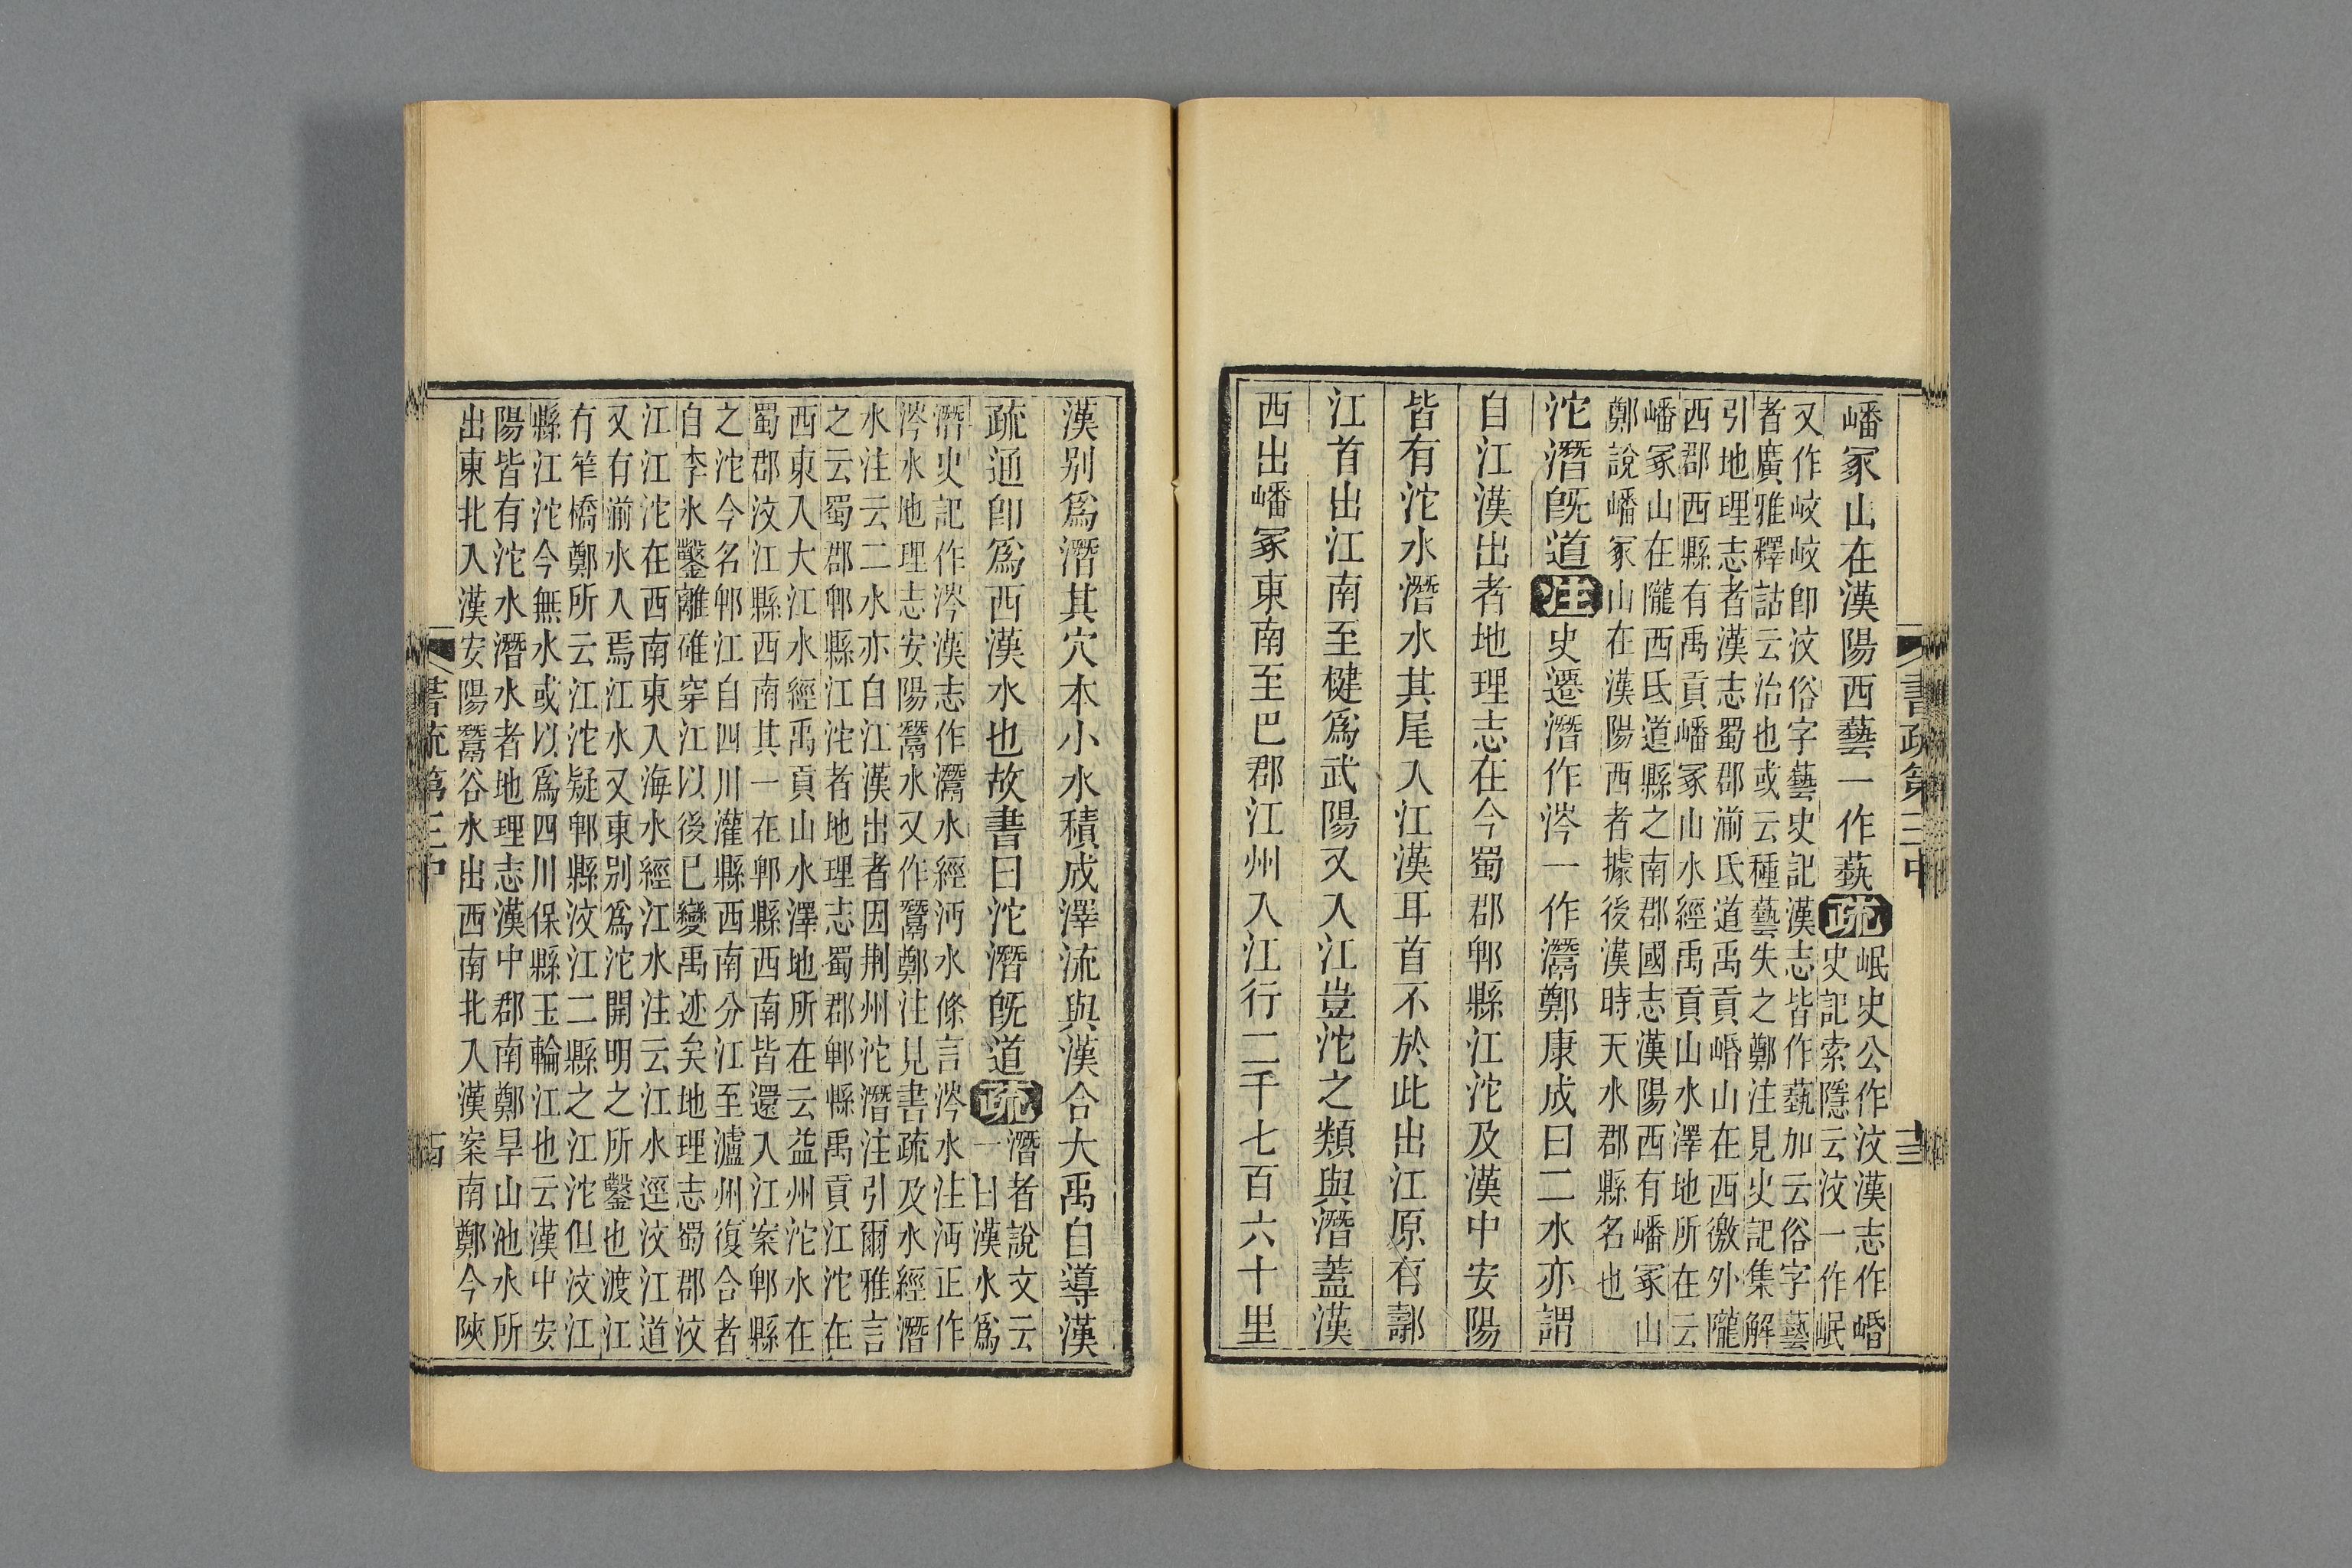 書疏第三中
十三
嶓冢山在漢陽西藝一作蓺疏岷史公作汶漢志作㟭
史記索隱云汶一作岷
又作㟩㟩卽汶俗字藝史記漢志皆作蓺加云俗字藝
者廣雅釋詁云治也或云種藝失之鄭注見史記集解
引地理志者漢志蜀郡湔氐道禹貢㟭山在西徼外隴
西郡西縣有禹貢嶓冢山水經禹貢山水澤地所在云
嶓冢山在隴西氐道縣之南郡國志漢陽西有嶓冢山
鄭說嶓冢山在漢陽西者據後漢時天水郡縣名也
沱潛旣道注史遷潛作涔一作灊鄭康成曰二水亦謂
自江漢出者地理志在今蜀郡郫縣江沱及漢中安陽
皆有沱水潛水其尾入江漢耳首不於此出江原有䣝
江首出江南至楗爲武陽又入江豈沱之類與潛蓋漢
西出嶓冢東南至巴郡江州入江行二千七百六十里
漢別爲潛其穴本小水積成澤流與漢合大禹自導漢
疏通卽爲西漢水也故書曰沱潛旣道疏潛者說文云
一曰漢水爲
潛史記作涔漢志作灊水經沔水條言涔水注沔正作
涔水地理志安陽鬵水又作鬵鄭注見書疏及水經潛
水注云二水亦自江漢出者因荆州沱潛注引爾雅言
之云蜀郡郫縣江沱者地理志蜀郡郫縣禹貢江沱在
西東入大江水經禹貢山水澤地所在云益州沱水在
蜀郡汶江縣西南其一在郫縣西南皆還入江案郫縣
之沱今名郫江自四川灌縣西南分江至瀘州復合者
自李冰鑿離碓穿江以後已變禹迹矣地理志蜀郡汶
江江沱在西南東入海水經江水注云江水逕汶江道
又有湔水入焉江水又東別爲沱開明之所鑿也渡江
有笮橋鄭所云江沱疑郫縣汶江二縣之江沱但汶江
縣江沱今無水或以爲四川保縣玉輪江也云漢中安
陽皆有沱水潛水者地理志漢中郡南鄭旱山池水所
出東北入漢安陽鬵谷水出西南北入漢案南鄭今陝
書疏第三中